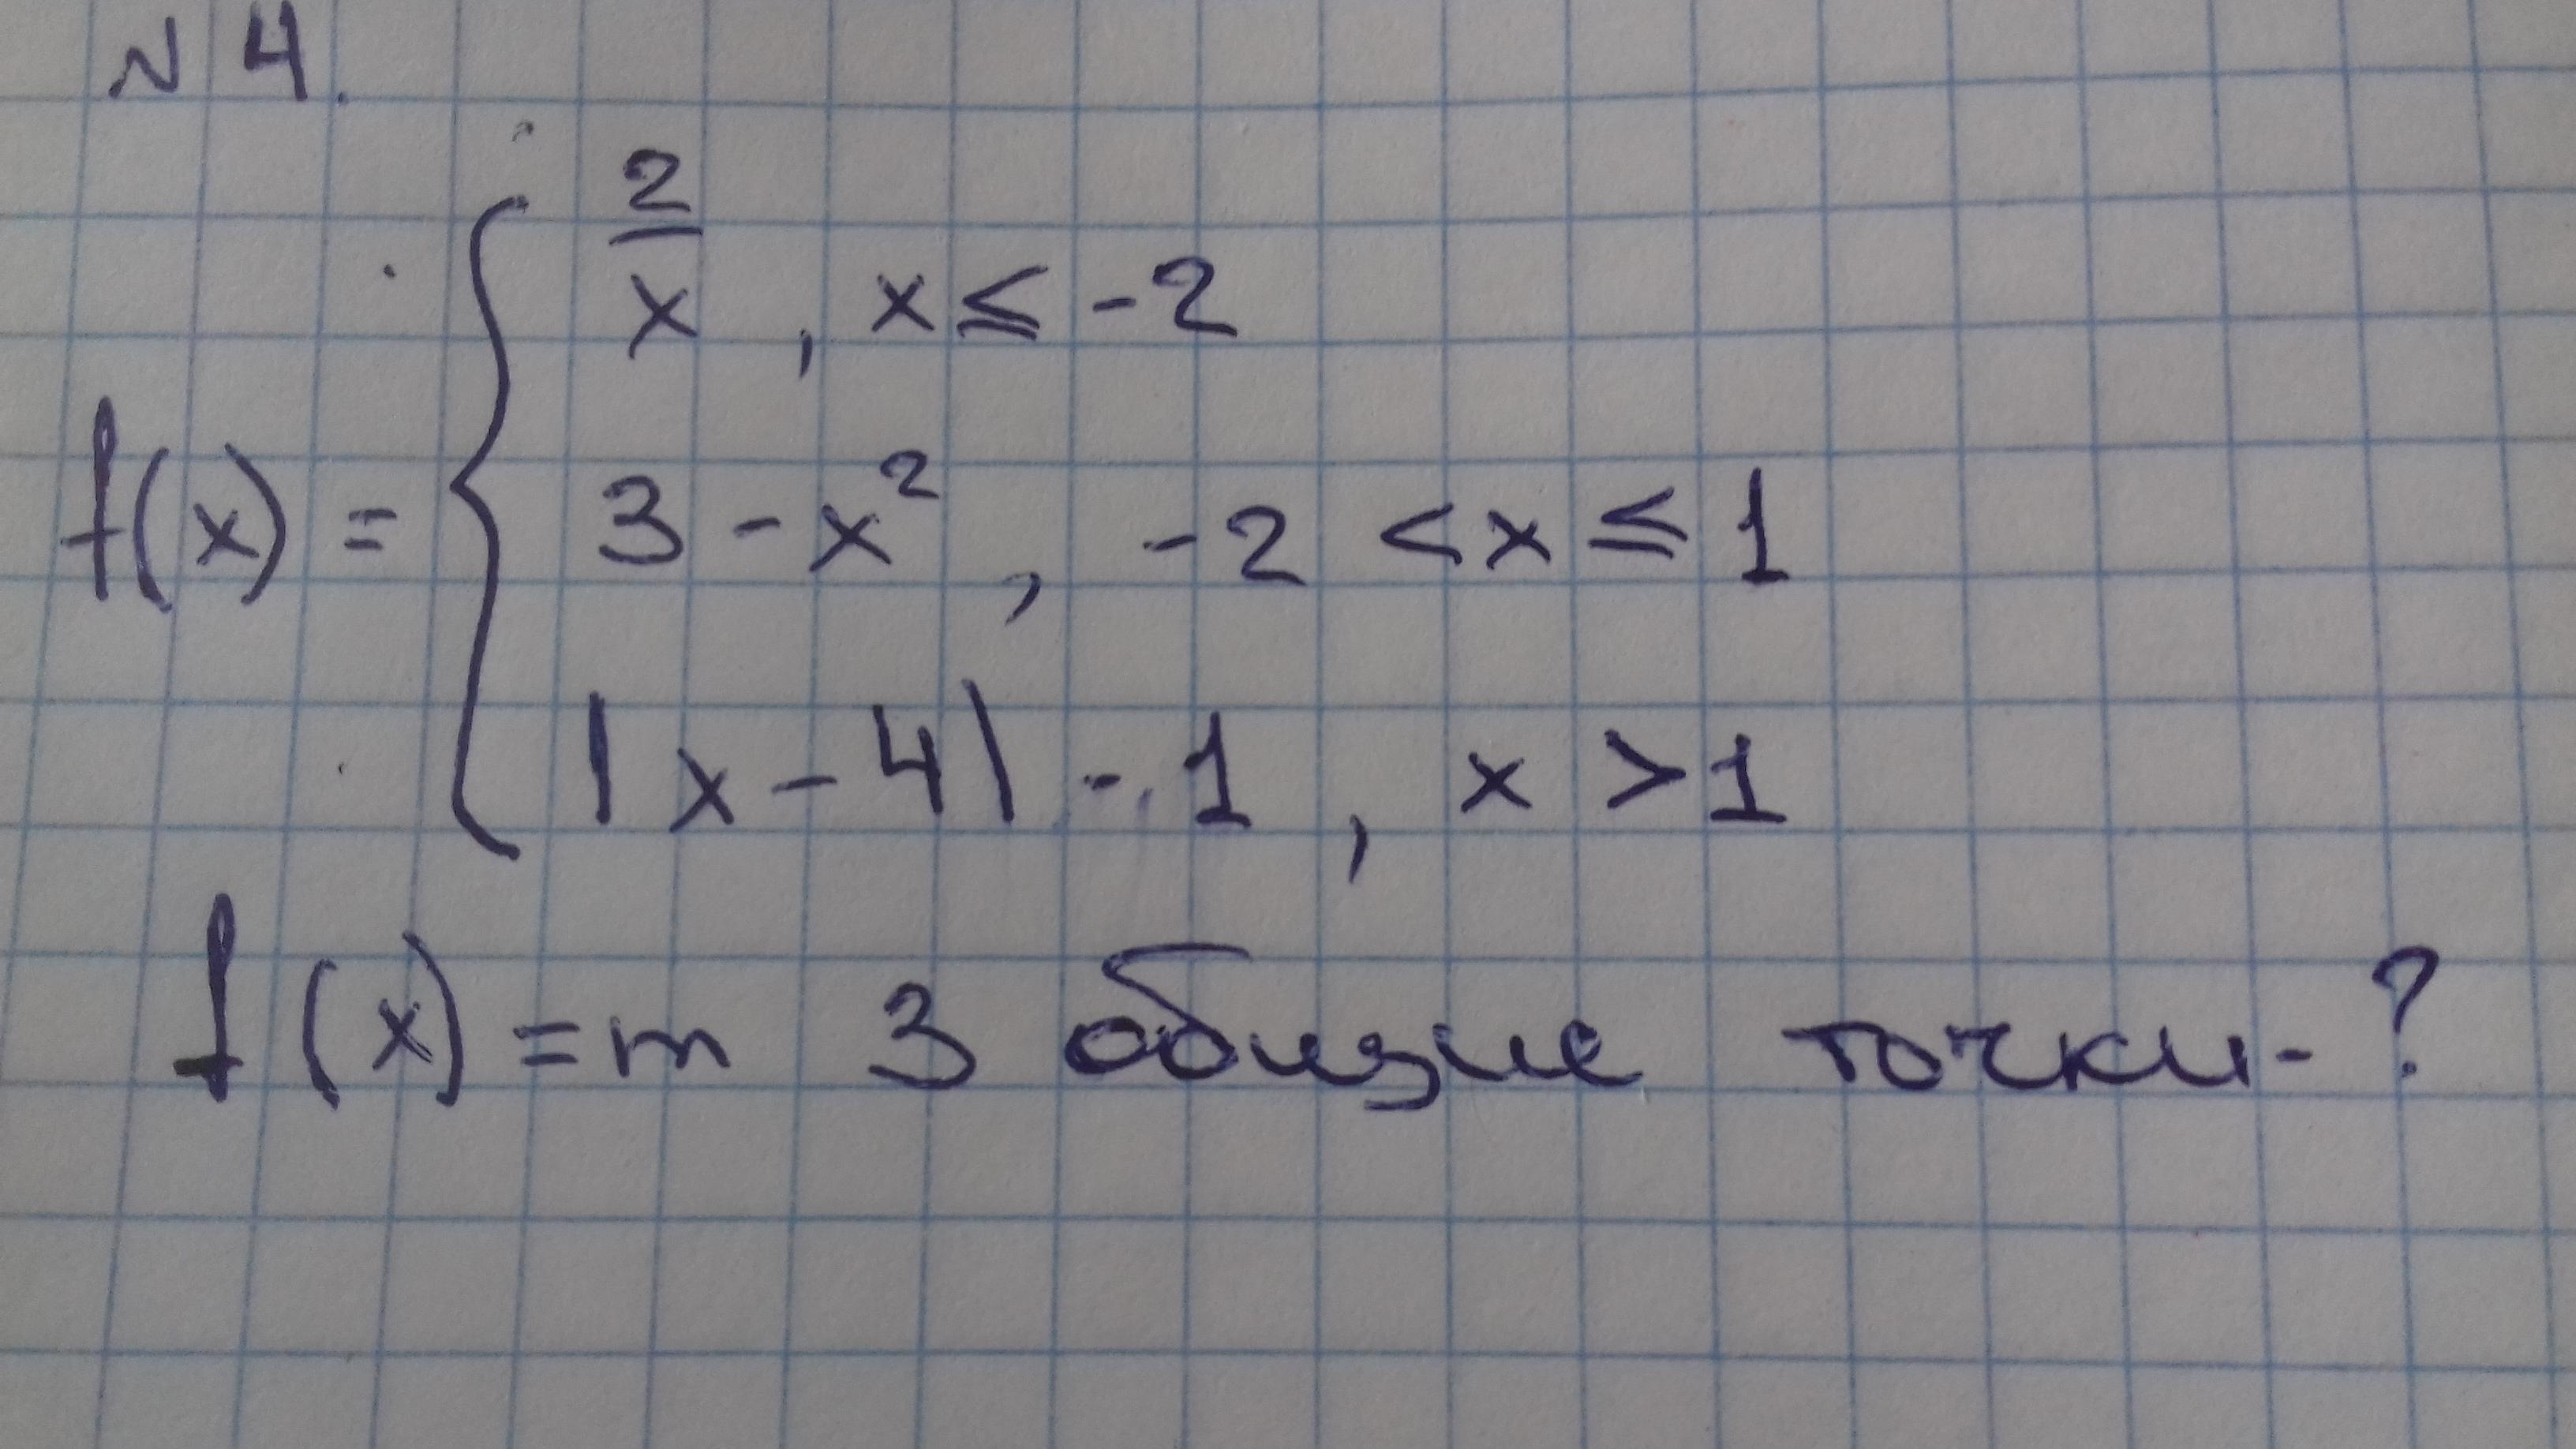 N 4.
2
x , x ≤ -2
f(x) = { 3 - x² , -2 < x ≤ 1
|x - 4| - 1 , x > 1
f(x) = m 3 общие точки - ?